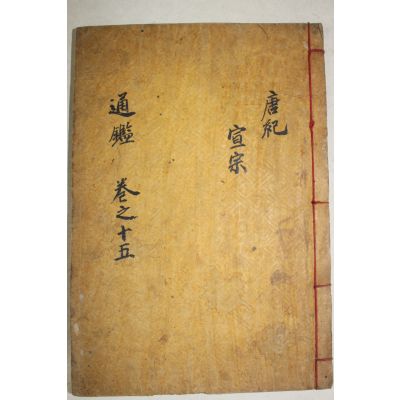 唐紀
宣宗
通鑑 卷之十五